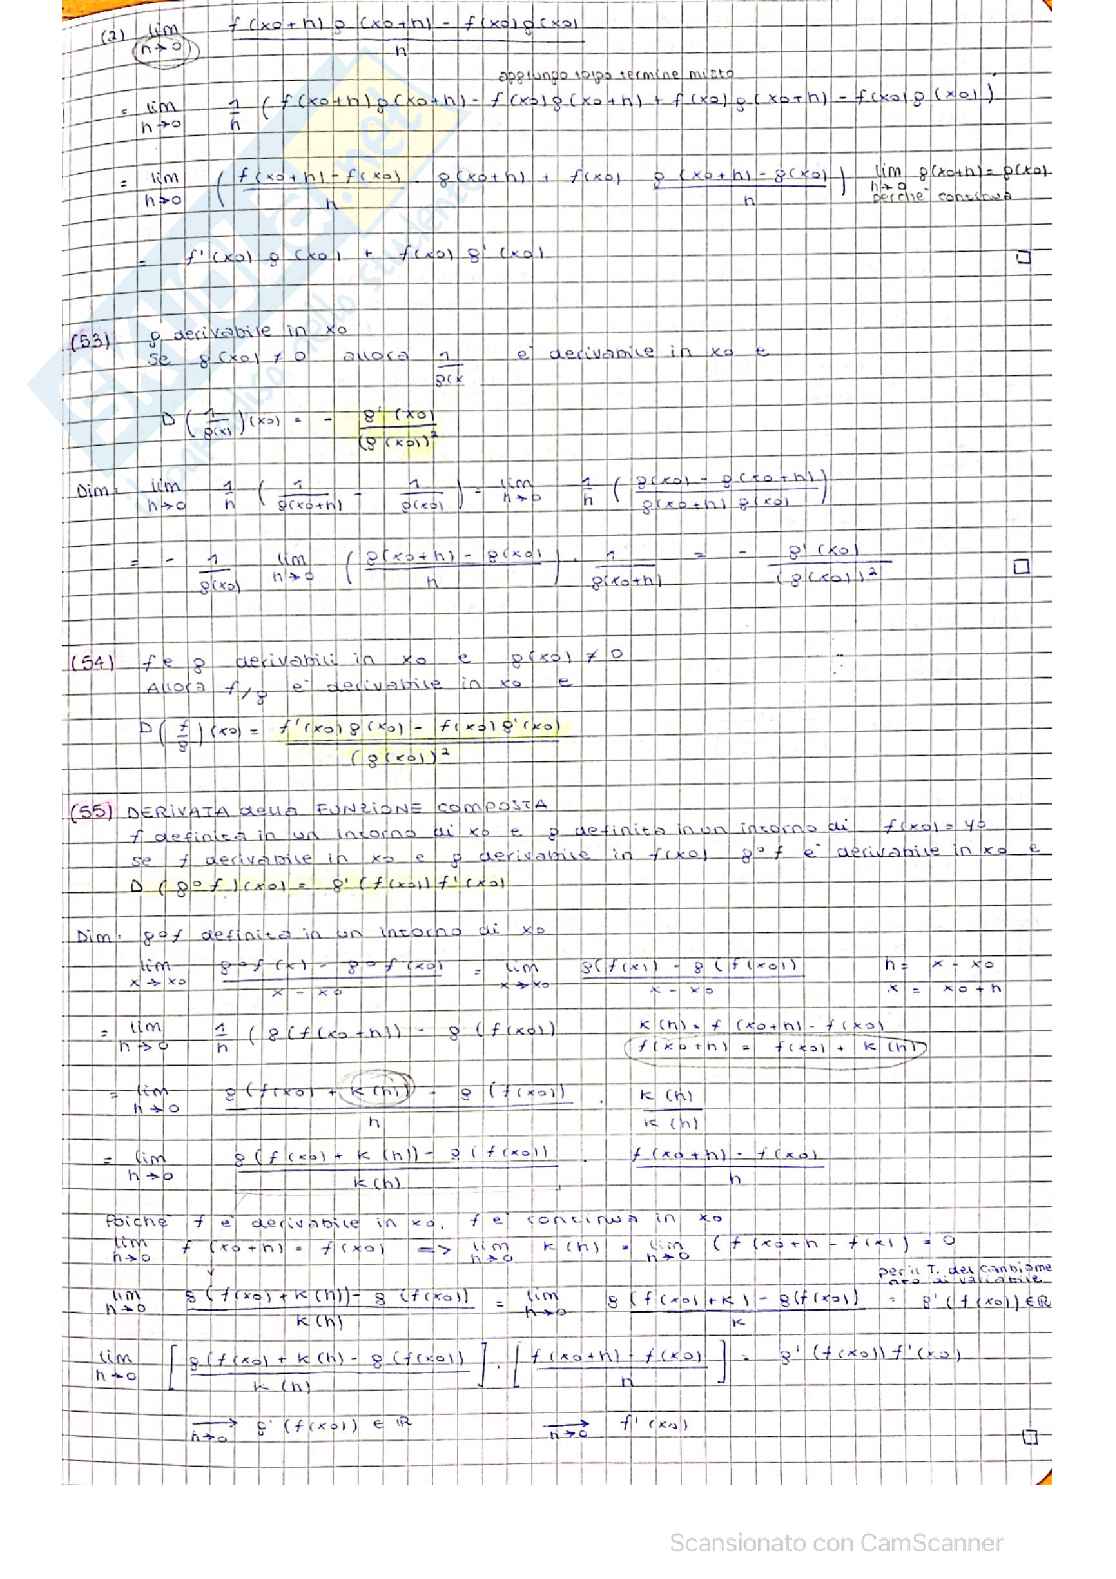 (2) lim h→0 f(x0+h)g(x0+h) - f(x0)g(x0) / h
aggiungo tolgo termine misto
= lim h→0 1/h (f(x0+h)g(x0+h) - f(x0)g(x0+h) + f(x0)g(x0+h) - f(x0)g(x0))
= lim h→0 (f(x0+h) - f(x0) / h · g(x0+h) + f(x0) g(x0+h) - g(x0) / h) lim h→0 g(x0+h) = g(x0)
perché continua
= f'(x0)g(x0) + f(x0)g'(x0) □
(53) g derivabile in x0
Se g(x0) ≠ 0 allora 1/g(x e' derivabile in x0 e
D(1/g(x))(x0) = - g'(x0) / (g(x0))²
Dim: lim h→0 1/h (1/g(x0+h) - 1/g(x0)) = lim h→0 1/h (g(x0) - g(x0+h) / g(x0+h)g(x0))
= - 1/g(x0) lim h→0 (g(x0+h) - g(x0) / h) · 1/g(x0+h) = - g'(x0) / (g(x0))² □
(54) f e g derivabili in x0 e g(x0) ≠ 0
Allora f/g e' derivabile in x0 e
D(f/g)(x0) = f'(x0)g(x0) - f(x0)g'(x0) / (g(x0))²
(55) DERIVATA della FUNZIONE COMPOSTA
f definita in un intorno di x0 e g definita in un intorno di f(x0) = y0
se f derivabile in x0 e g derivabile in f(x0) g∘f e' derivabile in x0 e
D(g∘f)(x0) = g'(f(x0))f'(x0)
Dim: g∘f definita in un intorno di x0
lim x→x0 g∘f(x) - g∘f(x0) / x - x0 = lim x→x0 g(f(x)) - g(f(x0)) / x - x0 h = x - x0
x = x0 + h
= lim h→0 1/h (g(f(x0+h)) - g(f(x0)) k(h) = f(x0+h) - f(x0)
f(x0+h) = f(x0) + k(h)
= lim h→0 g(f(x0) + k(h)) - g(f(x0)) / h · k(h) / k(h)
= lim h→0 g(f(x0) + k(h)) - g(f(x0)) / k(h) · f(x0+h) - f(x0) / h
Poiché f e' derivabile in x0, f e' continua in x0
lim h→0 f(x0+h) = f(x0) => lim h→0 k(h) = lim h→0 (f(x0+h - f(x)) = 0
per il T. del cambiamento di variabile
lim h→0 g(f(x0)+k(h)) - g(f(x0)) / k(h) = lim h→0 g(f(x0)+k) - g(f(x0)) / k = g'(f(x0)) ∈ ℝ
lim h→0 [g(f(x0) + k(h) - g(f(x0)) / k(h)] · [f(x0+h) - f(x0) / h] = g'(f(x0))f'(x0)
→ h→0 g'(f(x0)) ∈ ℝ → h→0 f'(x0) □
Scansionato con CamScanner